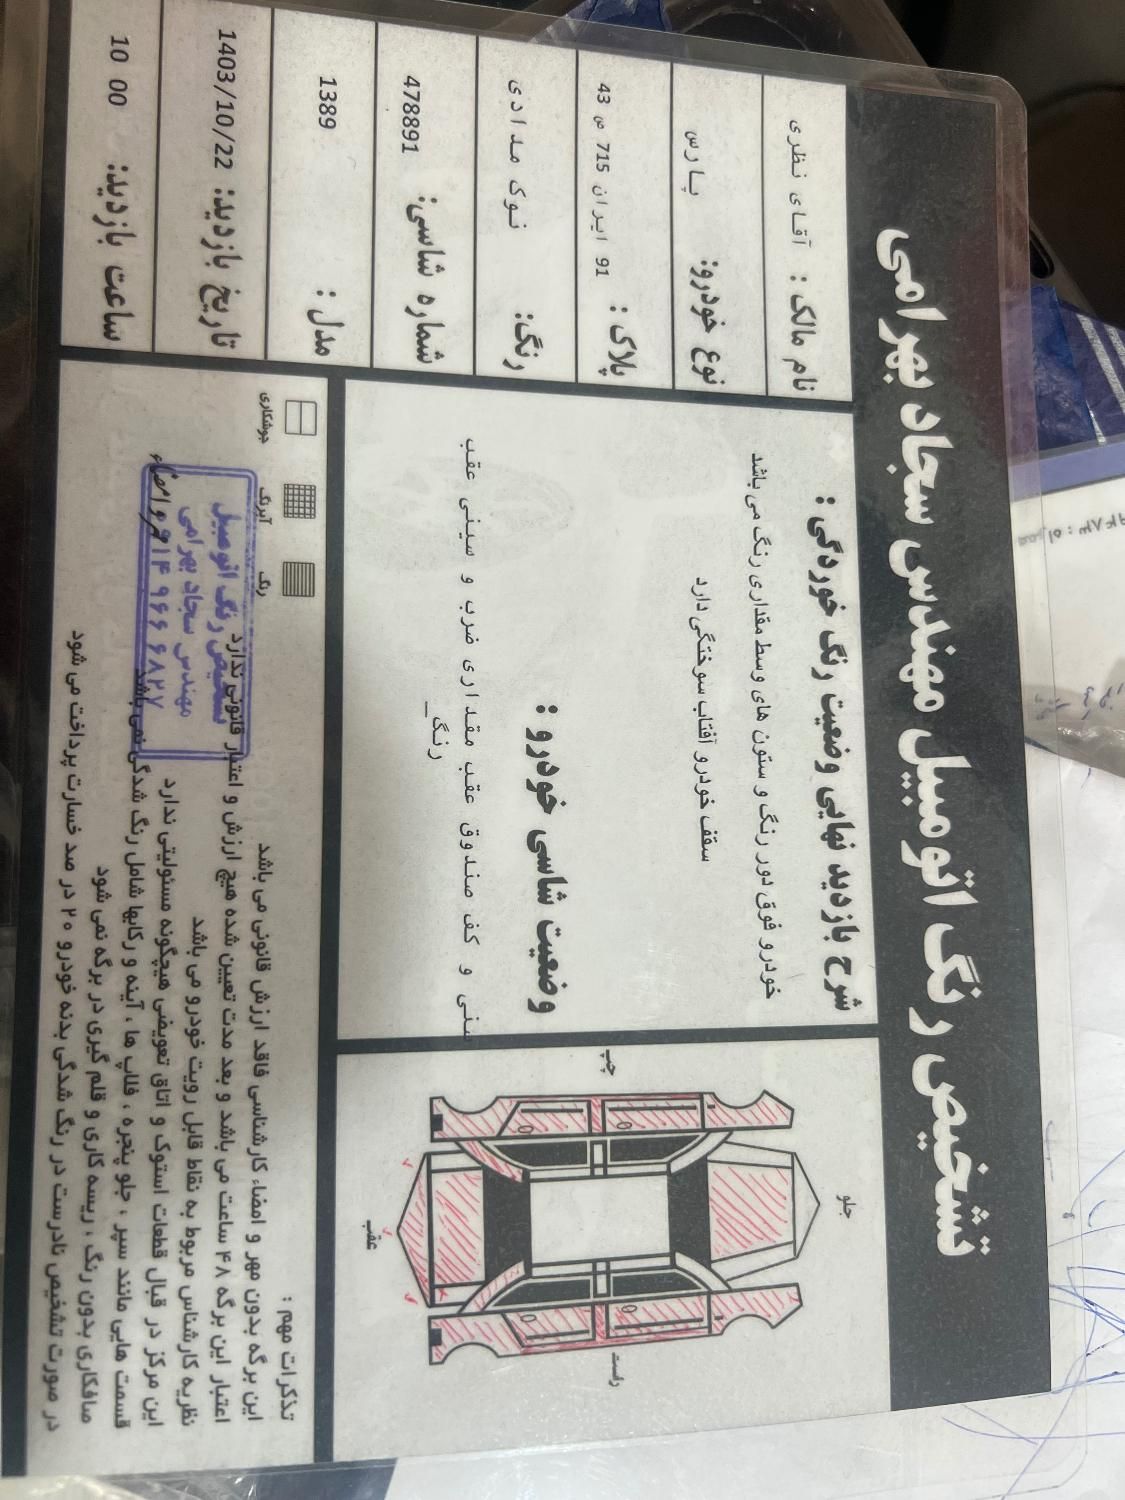 تشخیص رنگ اتومبیل مهندس سجاد بهرامی
نام مالک : آقای نظری
نوع خودرو: پارس
پلاک : 91 ایران 715 ص 43
رنگ: نوک مدادی
شماره شاسی: 478891
مدل : 1389
تاریخ بازدید: 1403/10/22
ساعت بازدید: 10 00
شرح بازدید نهایی وضعیت رنگ خوردگی :
خودرو فوق دور رنگ و ستون های وسط مقداری رنگ می باشد
سقف خودرو آفتاب سوختگی دارد
وضعیت شاسی خودرو :
سنی و کف صندوق عقب مقداری ضرب و سینی عقب
رنگ_
جلو
چپ
راست
عقب
جوشکاری
آبرنگ
رنگ
تذکرات مهم :
این برگه بدون مهر و امضاء کارشناسی فاقد ارزش قانونی می باشد
اعتبار این برگه ۴۸ ساعت می باشد و بعد مدت تعیین شده هیچ ارزش و اعتبار قانونی ندارد
نظریه کارشناس مربوط به نقاط قابل رویت خودرو می باشد
این مرکز در قبال قطعات استوک و اتاق تعویضی هیچگونه مسئولیتی ندارد
قسمت هایی مانند سپر ، جلو پنجره ، فلاپ ها ، آینه و رکابها شامل رنگ شدگی نمی باشد
صافکاری بدون رنگ ، ریسه کاری و قلم گیری در برگه نمی شود
در صورت تشخیص نادرست در رنگ شدگی بدنه خودرو ۲۰ در صد خسارت پرداخت می شود
مهر و امضاء
تشخیص رنگ اتومبیل
مهندس سجاد بهرامی
۰۹۱۴ ۹۶۶ ۶۸۲۷